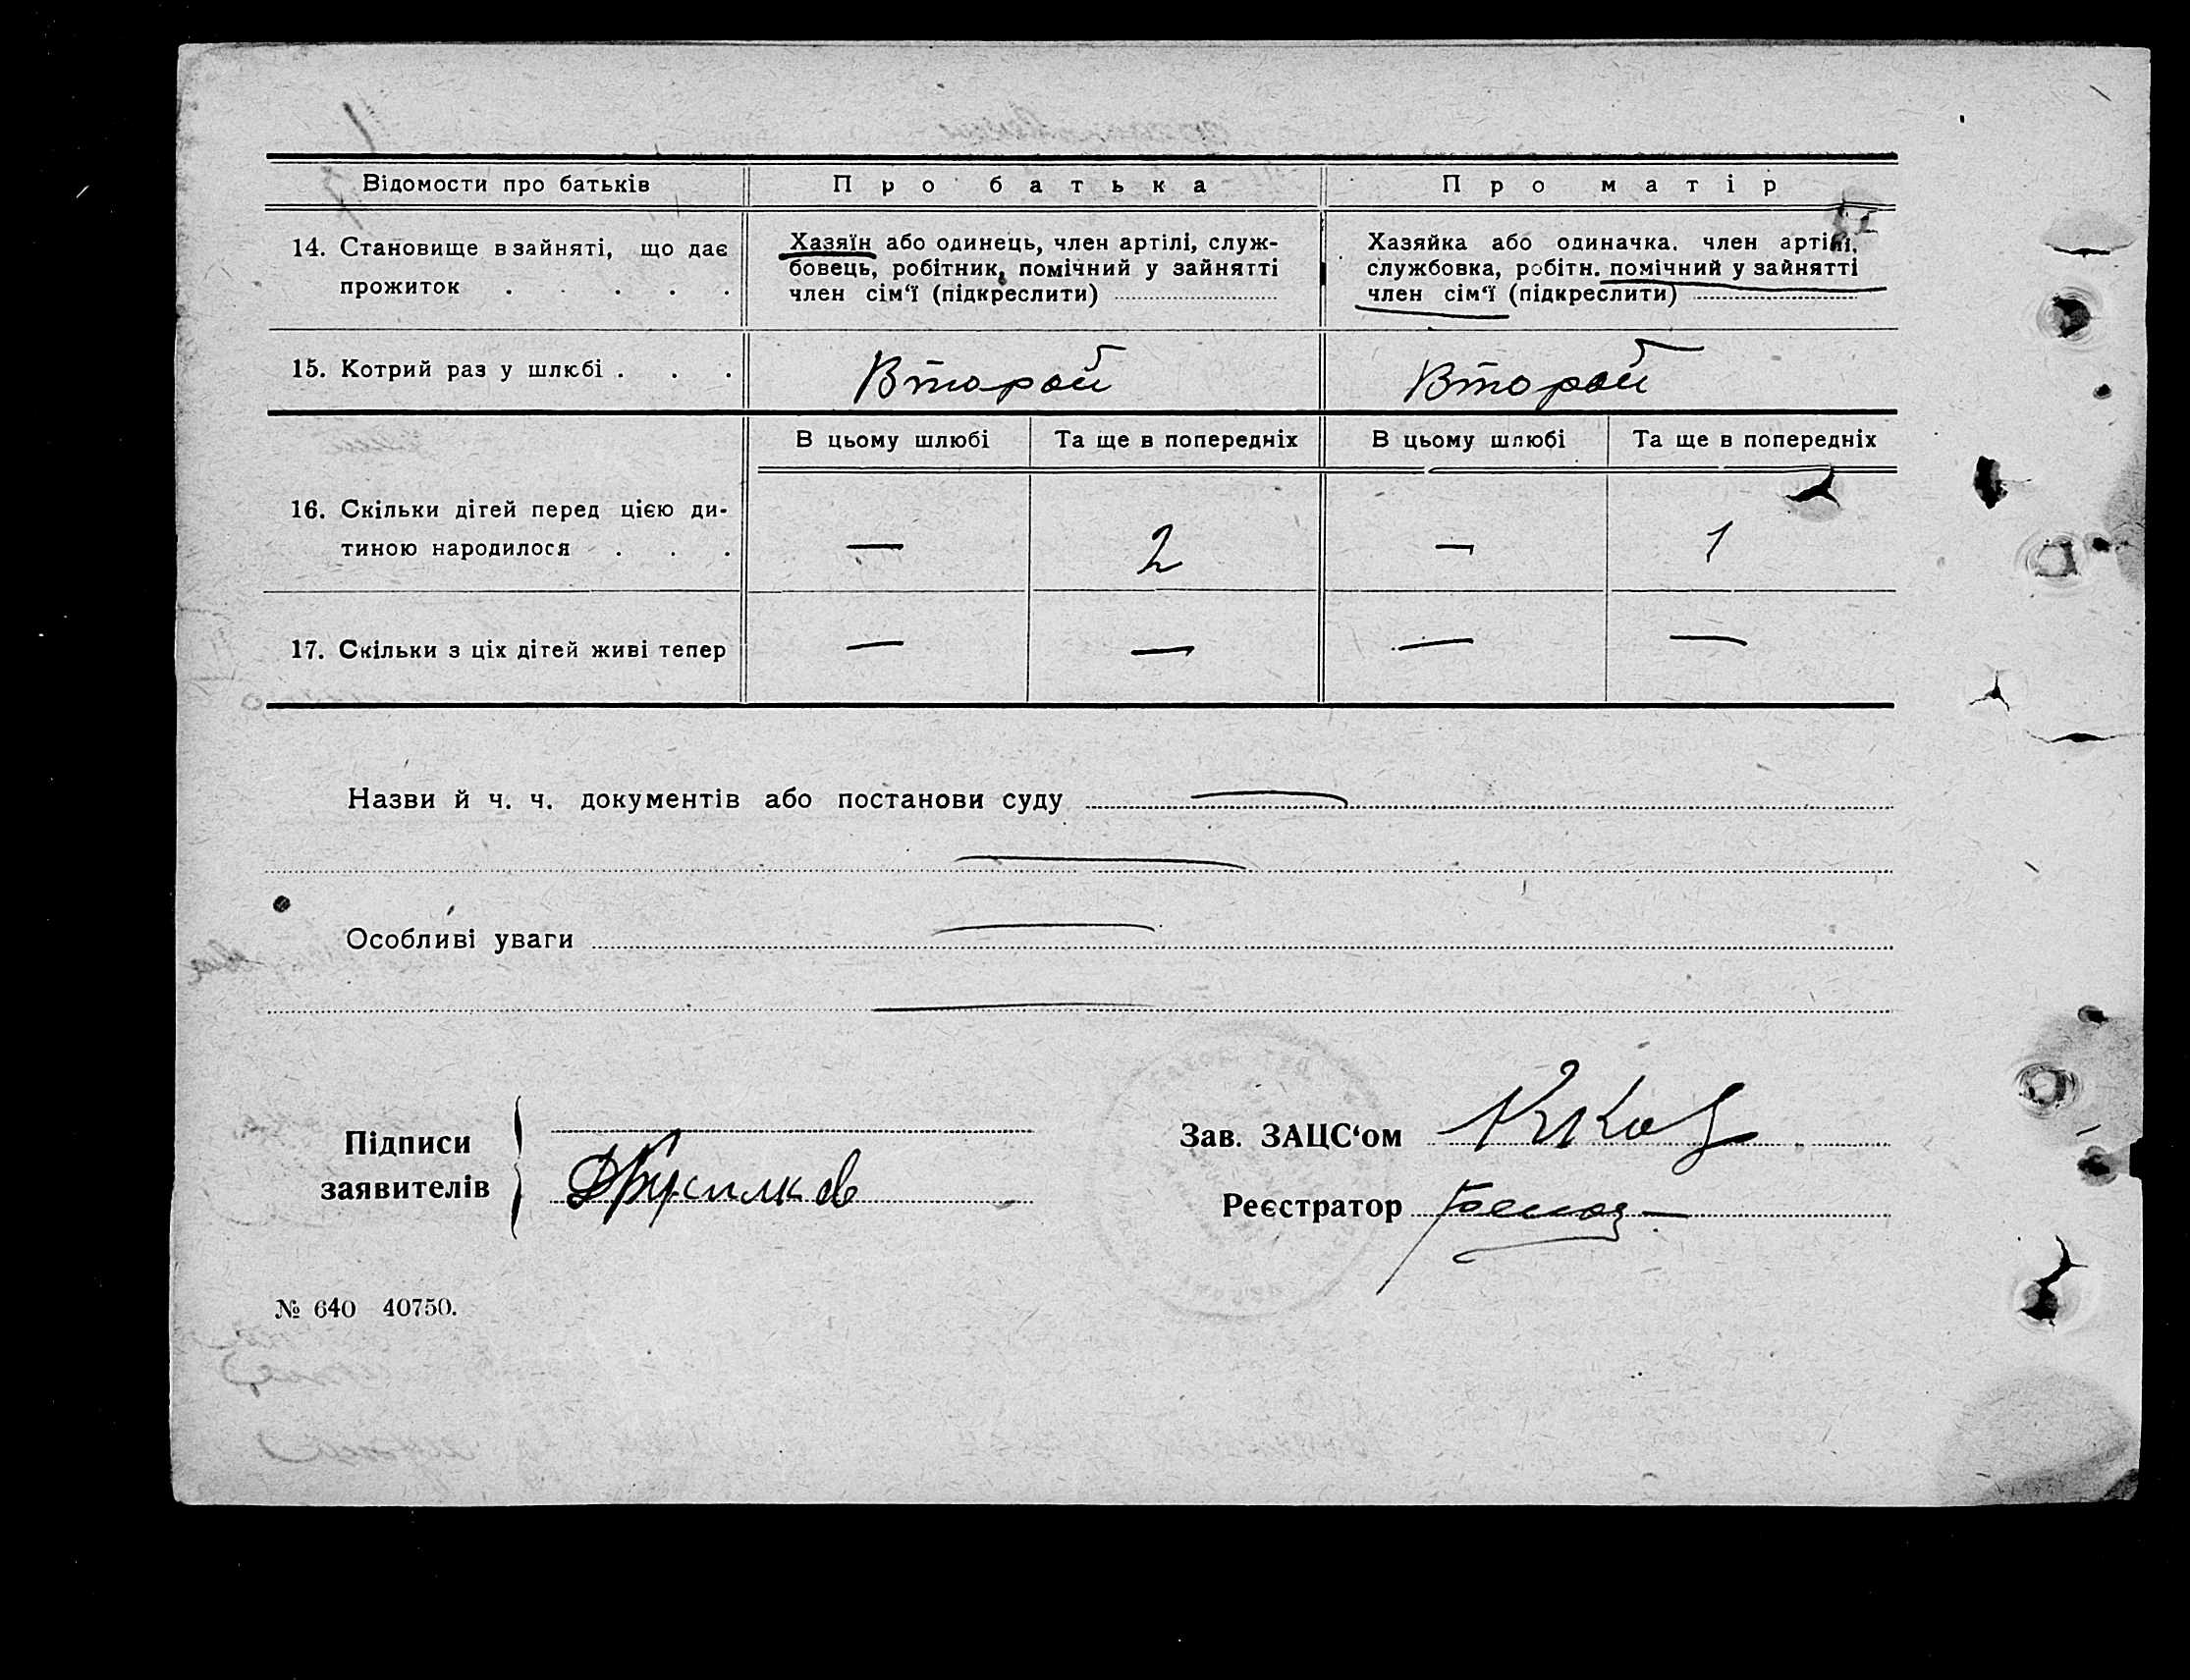 Відомости про батьків Про батька Про матір
14. Становище в зайняті, що дає
прожиток . . . . .
Хазяїн або одинець, член артілі, служ-
бовець, робітник, помічний у зайнятті
член сім‘ї (підкреслити)
Хазяйка або одиначка, член артілі,
службовка, робітн. помічний у зайнятті
член сім‘ї (підкреслити)
15. Котрий раз у шлюбі . . . Второй Второй
В цьому шлюбі Та ще в попередніх В цьому шлюбі Та ще в попередніх
16. Скільки дітей перед цією ди-
тиною народилося . . . — 2 — 1
17. Скільки з ціх дітей живі тепер — — — —
Назви й ч. ч. документів або постанови суду —
—
Особливі уваги —
—
Підписи
заявителів
Зав. ЗАЦС‘ом
Реєстратор
№ 640 40750.